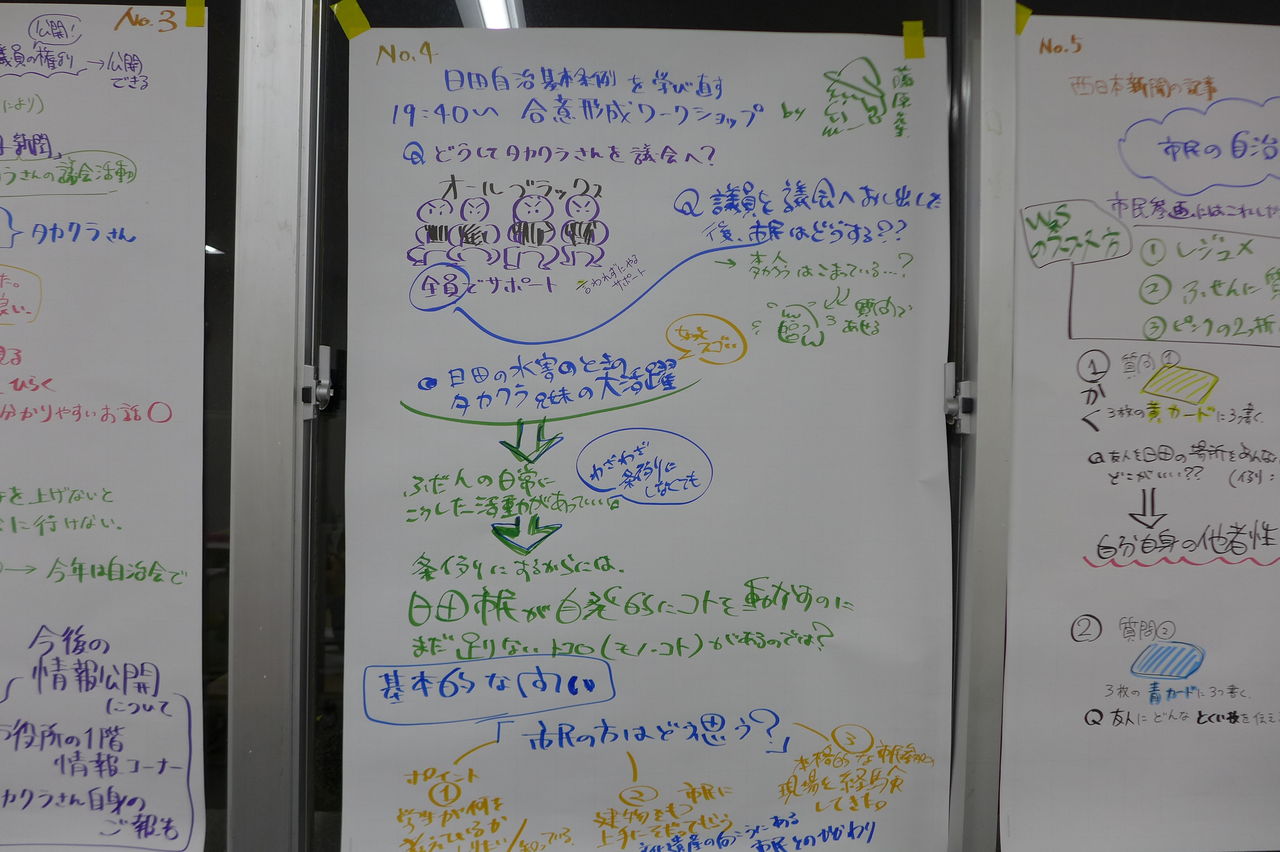 No.3
公開!
議員の権利 → 公開
できる
により)
新聞」
らさんの議会活動
タカクラさん
た。
良い。
ひらく
分かりやすいお話○
を上げないと
に行けない。
→ 今年は自治会で
今後の
情報公開
について
役所の1階
情報コーナー
カクラさん自身の
ご報も
No.4
日田自治基本条例を学び直す
19:40〜 合意形成ワークショップ by 藤原先生
Q どうしてタカクラさんを議会へ?
オールブラックス
全員でサポート
言われずにやる
サポート
Q 議員を議会へおし出した
後、市民はどうする??
→ 本人
タカクラはこまっている…?
質問で
あせる
● 日田の水害のときの
タカクラ兄妹の大活躍
ふだんの日常に
こうした活動があっていい
わざわざ
条例に
しなくても
条例にするからには、
日田市民が自発的にコトを動かすのに
まだ足りないトコロ(モノ・コト)があるのでは?
基本的な
「市民の方はどう思う?」
ポイント
①
学生が何を
考えているか
② 市民に
建物をもっ
上手に
遺産の向こうにある
市民とのかかわり
③
本格的な市民参加の
現場を経験
してきた。
No.5
西日本新聞の記事
市民の自治
市民参画にはこれし
W.S
のススメ方
① レジュメ
② ふせんに質
③ ピンクの2つ折
① 質問①
かく
3枚の黄カードに3つ書く
Q 友人を日田の場所をあんな
どこがいい?? (例:
自分自身の他者性
② 質問②
3枚の青カードに3つ書く.
Q 友人にどんなとくい技を伝え